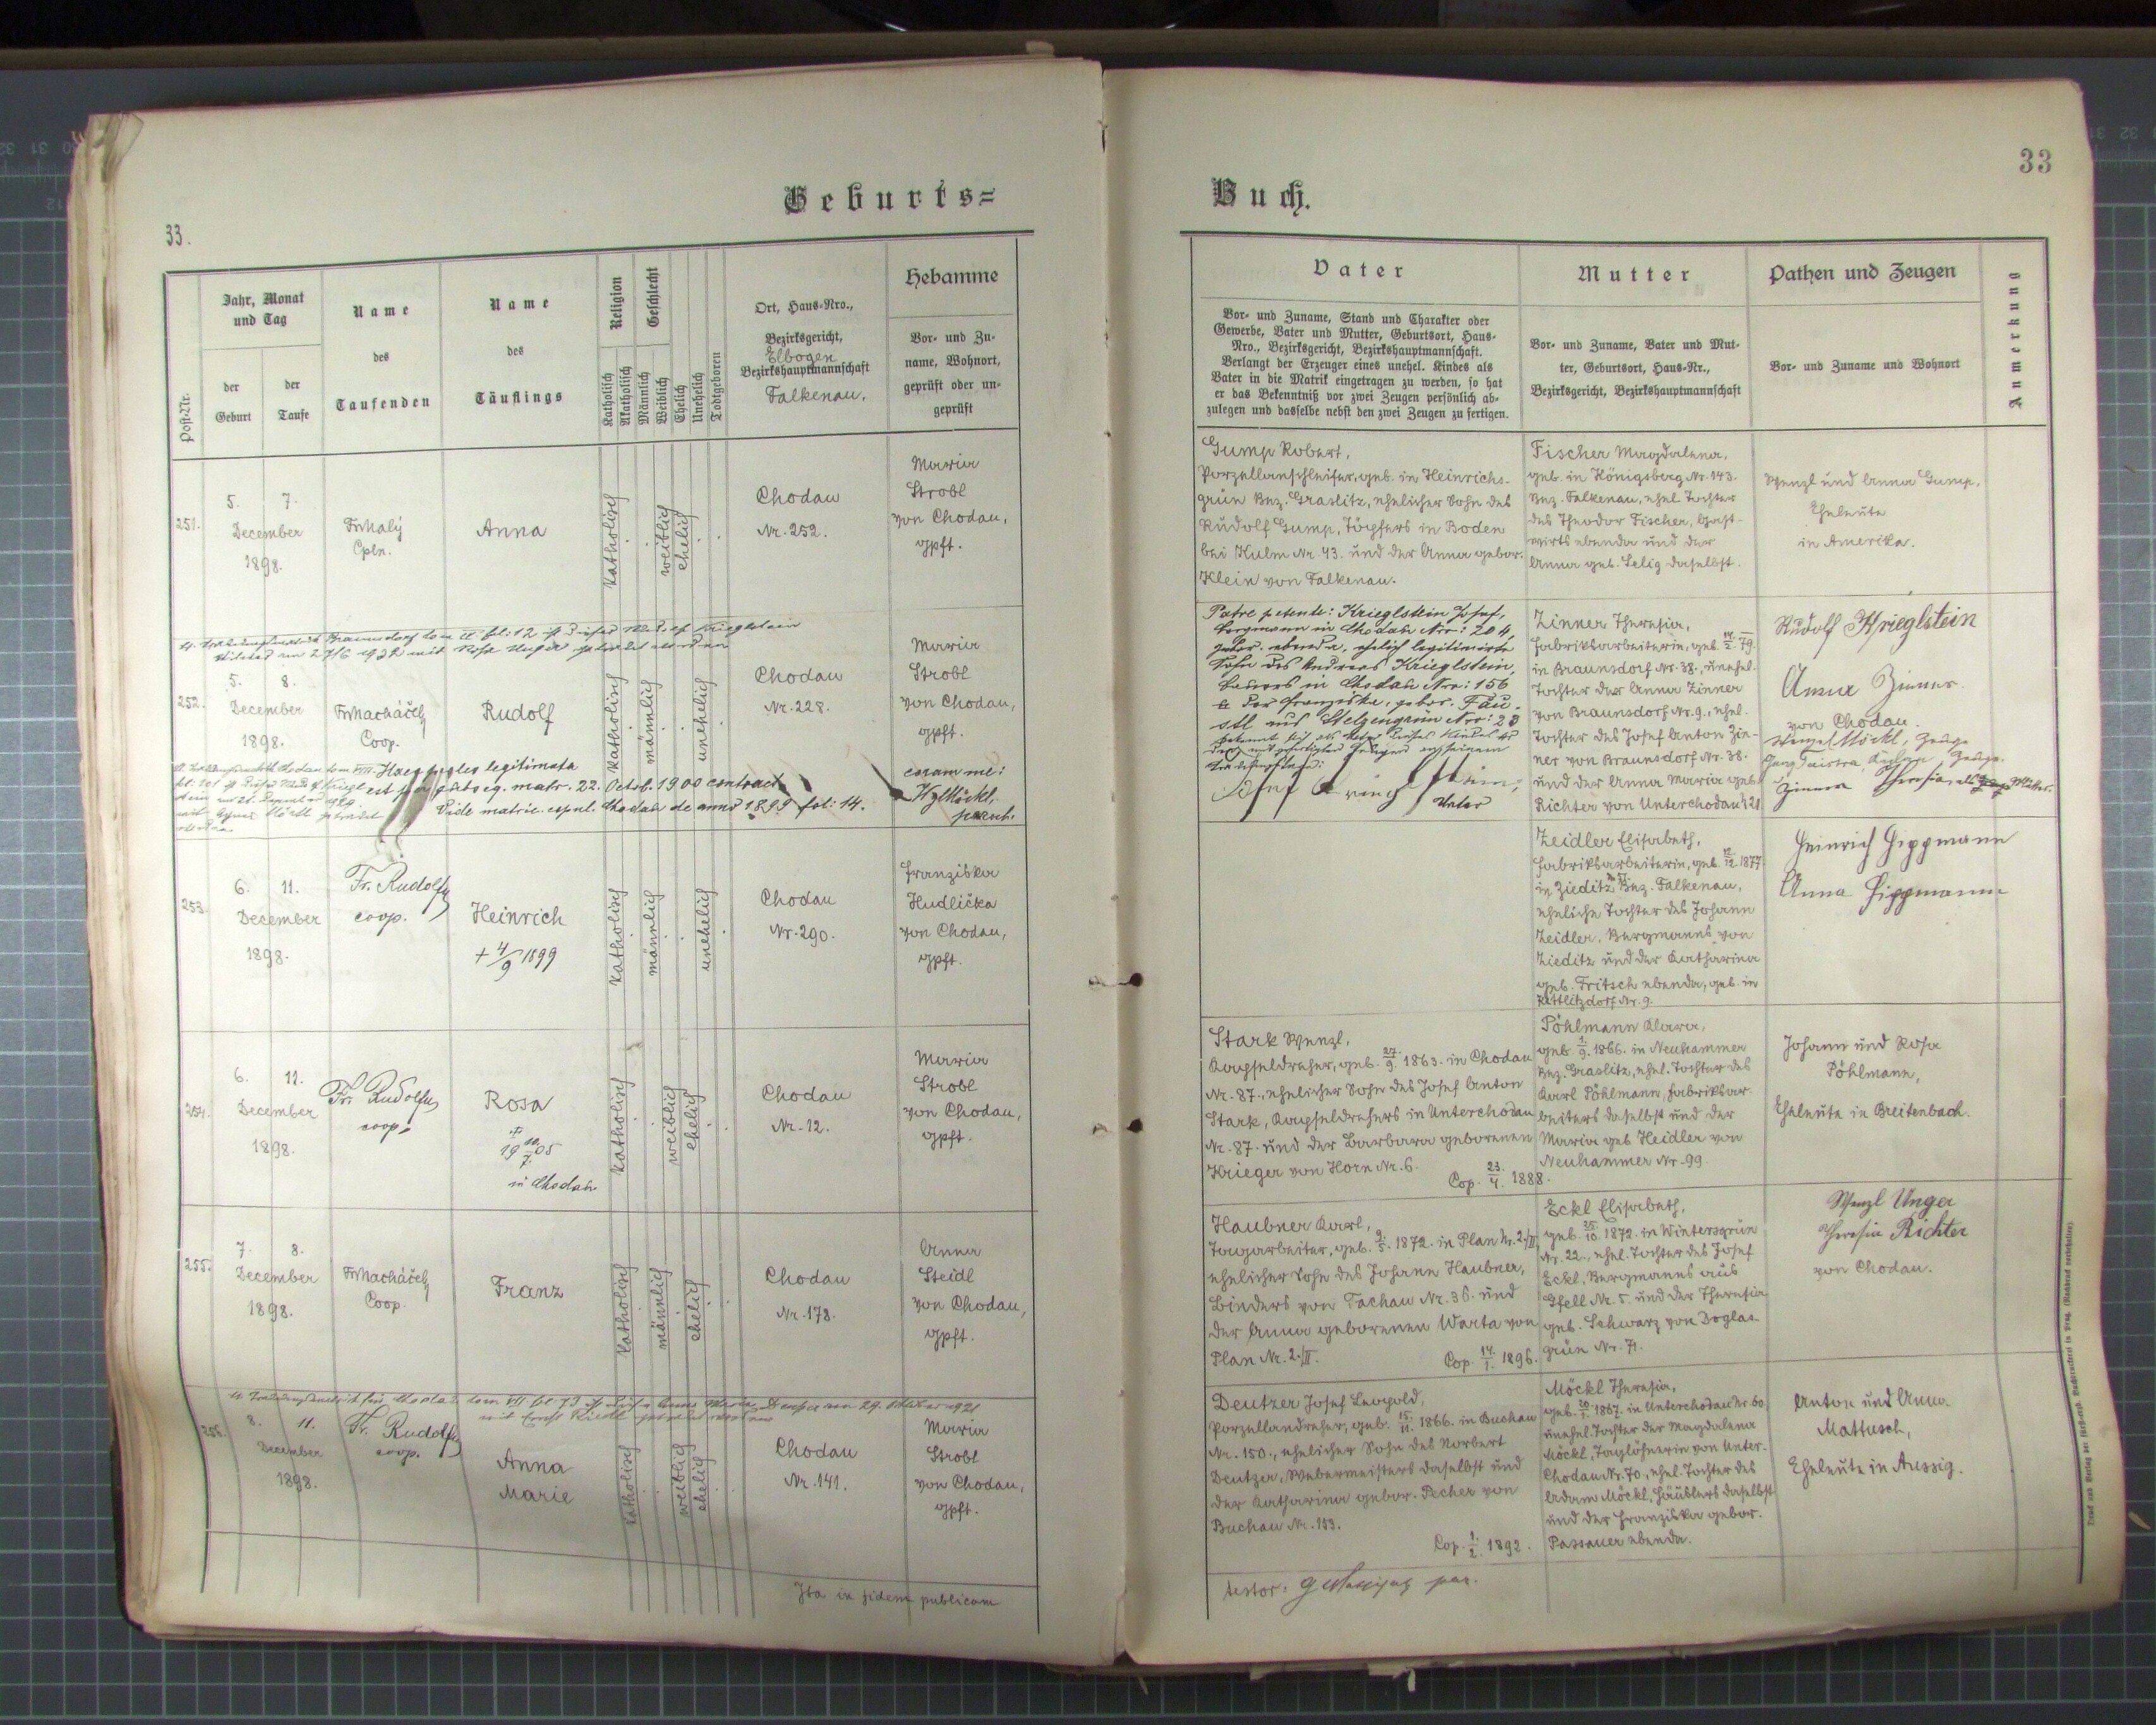 33
Geburts=
Buch.
33.
Post-Nr.
Jahr, Monat
und Tag
der
Geburt
der
Taufe
Name
des
Taufenden
Name
des
Täuflings
Religion
Katholisch
Akatholisch
Geschlecht
Männlich
Weiblich
Ehelich
Unehelich
Todtgeboren
Ort, Haus-Nro.,
Bezirksgericht,
Elbogen
Bezirkshauptmannschaft
Falkenau.
Hebamme
Vor- und Zu-
name, Wohnort,
geprüft oder un-
geprüft
Vater
Vor- und Zuname, Stand und Charakter oder
Gewerbe, Vater und Mutter, Geburtsort, Haus-
Nro., Bezirksgericht, Bezirkshauptmannschaft.
Verlangt der Erzeuger eines unehel. Kindes als
Vater in die Matrik eingetragen zu werden, so hat
er das Bekenntniß vor zwei Zeugen persönlich ab-
zulegen und dasselbe nebst den zwei Zeugen zu fertigen.
Mutter
Vor- und Zuname, Vater und Mut-
ter, Geburtsort, Haus-Nr.,
Bezirksgericht, Bezirkshauptmannschaft
Pathen und Zeugen
Vor- und Zuname und Wohnort
Anmerkung
251.
5. 7.
December
1898.
Fr. Malý
Cpln.
Anna
katholisch
weiblich
ehelich
Chodau
Nr. 252.
Maria
Strobl
von Chodau,
gpft.
Gump Robert,
Porzellanschleifer, geb. in Heinrichs-
grün Bez. Graslitz, ehelicher Sohn des
Rudolf Gump, Töpfers in Boden
bei Kulm Nr. 43. und der Anna gebor.
Klein von Falkenau.
Fischer Magdalena,
geb. in Königsberg Nr. 143.
Bez. Falkenau, ehel. Tochter
des Theodor Fischer, Gast-
wirts ebenda und der
Anna geb. Selig daselbst.
Wenzl und Anna Gump,
Eheleute
in Amerika.
252.
5. 8.
December
1898.
Fr. Macháček
Coop.
Rudolf
katholisch
männlich
unehelich
Chodau
Nr. 228.
Maria
Strobl
von Chodau,
gpft.
Haec proles legitimata
est per subseq. matr. 22. Octob. 1900 contract.
Vide matric. copul. Chodau de anno 1899 fol: 14.
coram me:
Patre petente: Krieglstein Josef,
Bergmann in Chodau Nro: 204,
gebor. ebenda, ehelich legitimirter
Sohn des Andreas Krieglstein,
Bauers in Chodau Nro: 156
u. der Franziska, gebor. Fäu-
stl aus Stelzengrün Nro: 23
bekennt sich als Vater dieses Kindes
Josef Krieglstein,
Vater
Zinner Theresia,
Fabriksarbeiterin, geb.
in Braunsdorf Nr. 38., unehel.
Tochter der Anna Zinner
von Braunsdorf Nr. 9., ehel.
Tochter des Josef Anton Zin-
ner von Braunsdorf Nr. 38.
und der Anna Maria geb.
Richter von Unterchodau
Rudolf Krieglstein
Anna Zinner
von Chodau.
Wenzel Möckl, Zeuge
Zinner Theresia, als Mutter.
253.
6. 11.
December
1898.
Fr. Rudolf
coop.
Heinrich
+ 4/9 1899
katholisch
männlich
unehelich
Chodau
Nr. 290.
Franziska
Hudlička
von Chodau,
gpft.
Zeidler Elisabeth,
Fabriksarbeiterin, geb. 1877.
in Zieditz Bez. Falkenau,
eheliche Tochter des Johann
Zeidler, Bergmanns von
Zieditz und der Katharina
geb. Fritsch ebenda, geb. in
Kittlitzdorf Nr. 9.
Heinrich Hippmann
Anna Hippmann
254.
6. 11.
December
1898.
Fr. Rudolf
coop.
Rosa
in Chodau
katholisch
weiblich
ehelich
Chodau
Nr. 12.
Maria
Strobl
von Chodau,
gpft.
Stark Wenzl,
Kapseldreher, geb. 27./9. 1863. in Chodau
Nr. 87., ehelicher Sohn des Josef Anton
Stark, Kapseldrehers in Unterchodau
Nr. 87. und der Barbara geborenen
Krieger von Horn Nr. 6.
Cop. 23./4. 1888.
Pöhlmann Klara,
geb. 1./9. 1866. in Neuhammer
Bez. Graslitz, ehel. Tochter des
Karl Pöhlmann, Fabriksar-
beiters daselbst und der
Maria geb. Heidler von
Neuhammer Nr. 99.
Johann und Rosa
Pöhlmann,
Eheleute in Breitenbach.
255.
7. 8.
December
1898.
Fr. Macháček
Coop.
Franz
katholisch
männlich
ehelich
Chodau
Nr. 178.
Anna
Steidl
von Chodau,
gpft.
Haubner Karl,
Tagarbeiter, geb. 9./5. 1872. in Plan Nr. 2./II,
ehelicher Sohn des Johann Haubner,
Binders von Tachau Nr. 36. und
der Anna geborenen Warta von
Plan Nr. 2./II.
Cop. 14./1. 1896.
Eckl Elisabeth,
geb. 25./10. 1872. in Wintersgrün
Nr. 22., ehel. Tochter des Josef
Eckl, Bergmanns aus
Gfell Nr. 5. und der Theresia
geb. Schwarz von Doglas-
grün Nr. 71.
Wenzl Unger
Theresia Richter
von Chodau.
256.
8. 11.
December
1898.
Fr. Rudolf
coop.
Anna
Marie
katholisch
weiblich
ehelich
Chodau
Nr. 141.
Maria
Strobl
von Chodau,
gpft.
Deutzer Josef Leopold,
Porzellandreher, geb. 15./11. 1866. in Buchau
Nr. 150., ehelicher Sohn des Norbert
Deutzer, Webermeisters daselbst und
der Katharina gebor. Pecher von
Buchau Nr. 153.
Cop. 1./2. 1892.
Möckl Theresia,
geb. 1867. in Unterchodau Nr. 60,
unehel. Tochter der Magdalena
Möckl, Taglöhnerin von Unter-
Chodau Nr. 70., ehel. Tochter des
Adam Möckl, Häuslers daselbst
und der Franziska gebor.
Passauer ebenda.
Anton und Anna
Mattusch,
Eheleute in Aussig.
Ita in fidem publicam
testor: